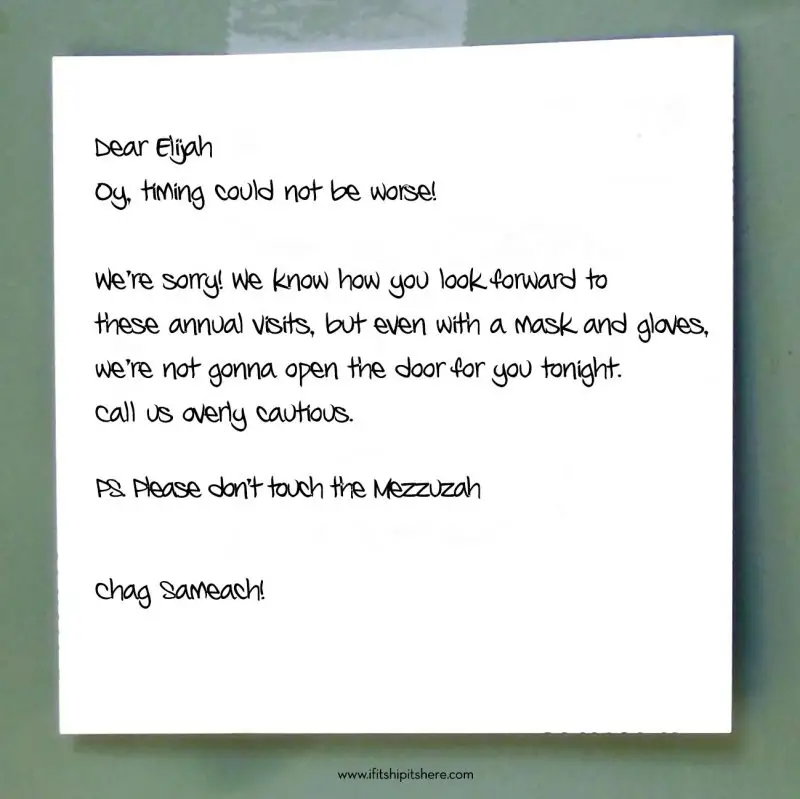 Dear Elijah
Oy, timing could not be worse!
We're sorry! We know how you look forward to
these annual visits, but even with a mask and gloves,
we're not gonna open the door for you tonight.
Call us overly cautious.
PS. Please don't touch the Mezzuzah
Chag Sameach!
www.ifitshipitshere.com